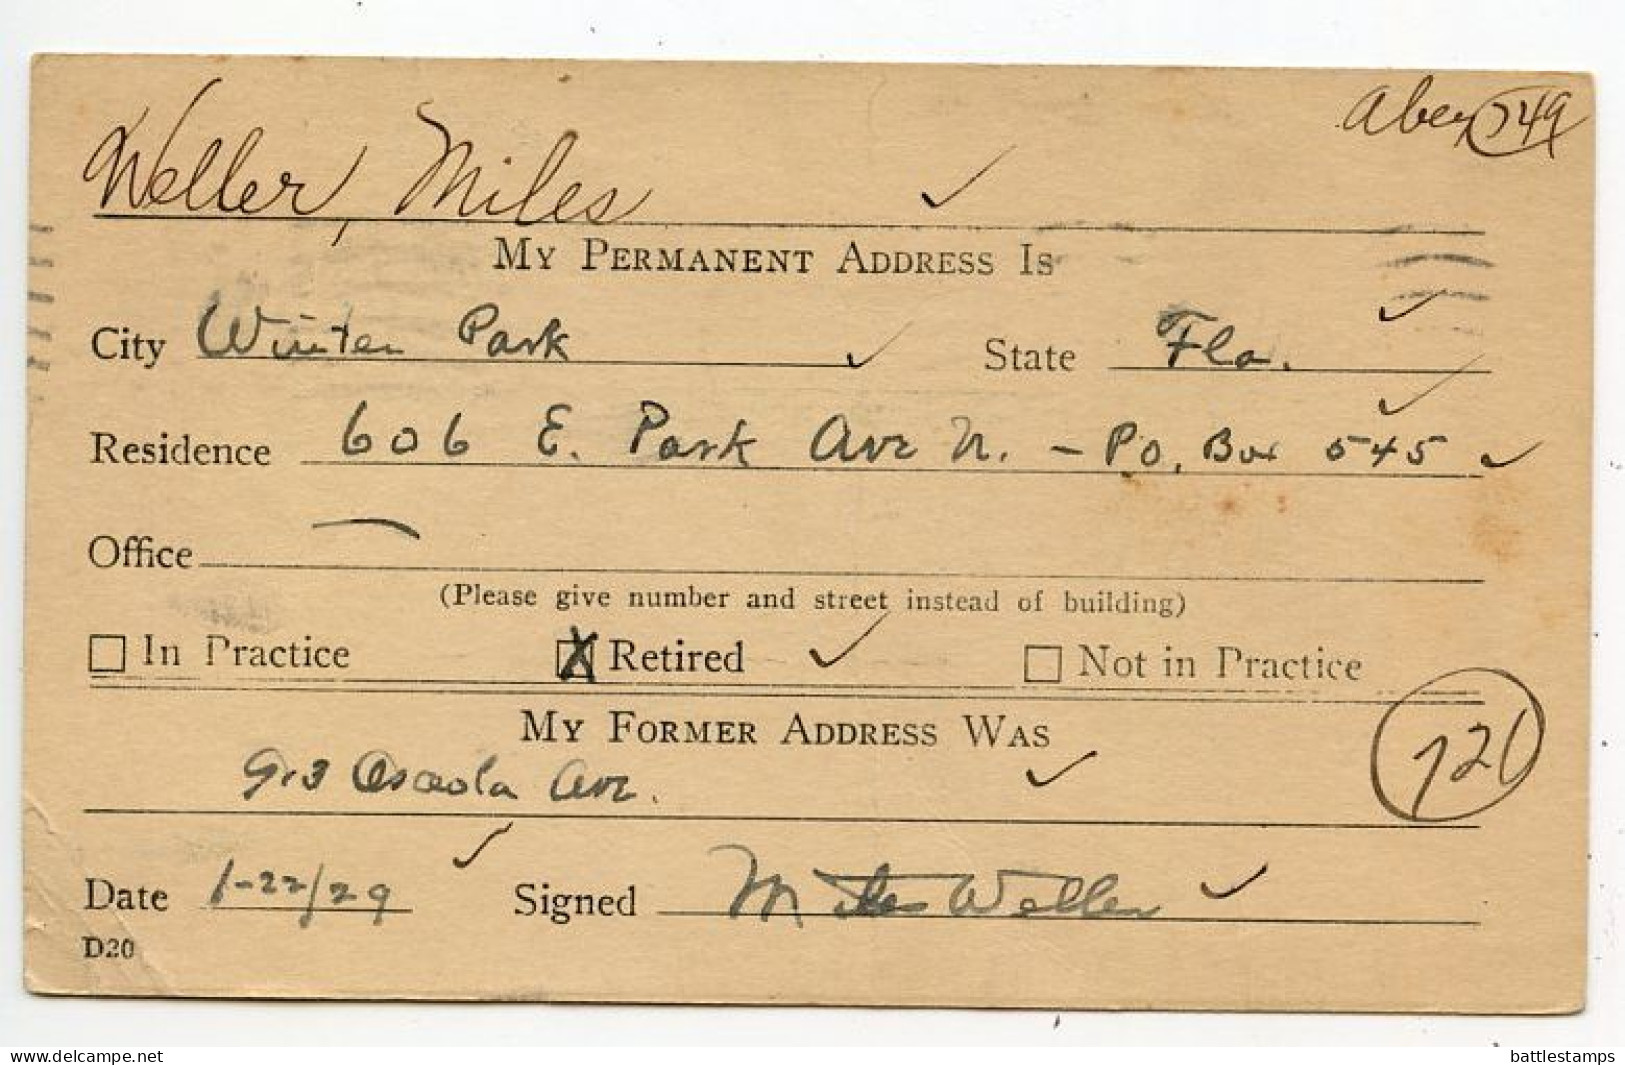 Weller, Miles
My Permanent Address Is
City Winter Park State Fla.
Residence 606 E. Park Ave N. - P.O. Box 545
Office —
(Please give number and street instead of building)
In Practice X Retired Not in Practice
My Former Address Was
913 Osceola Ave.
721
Date 1-22/29 Signed Miles Weller
D20
www.delcampe.net battlestamps